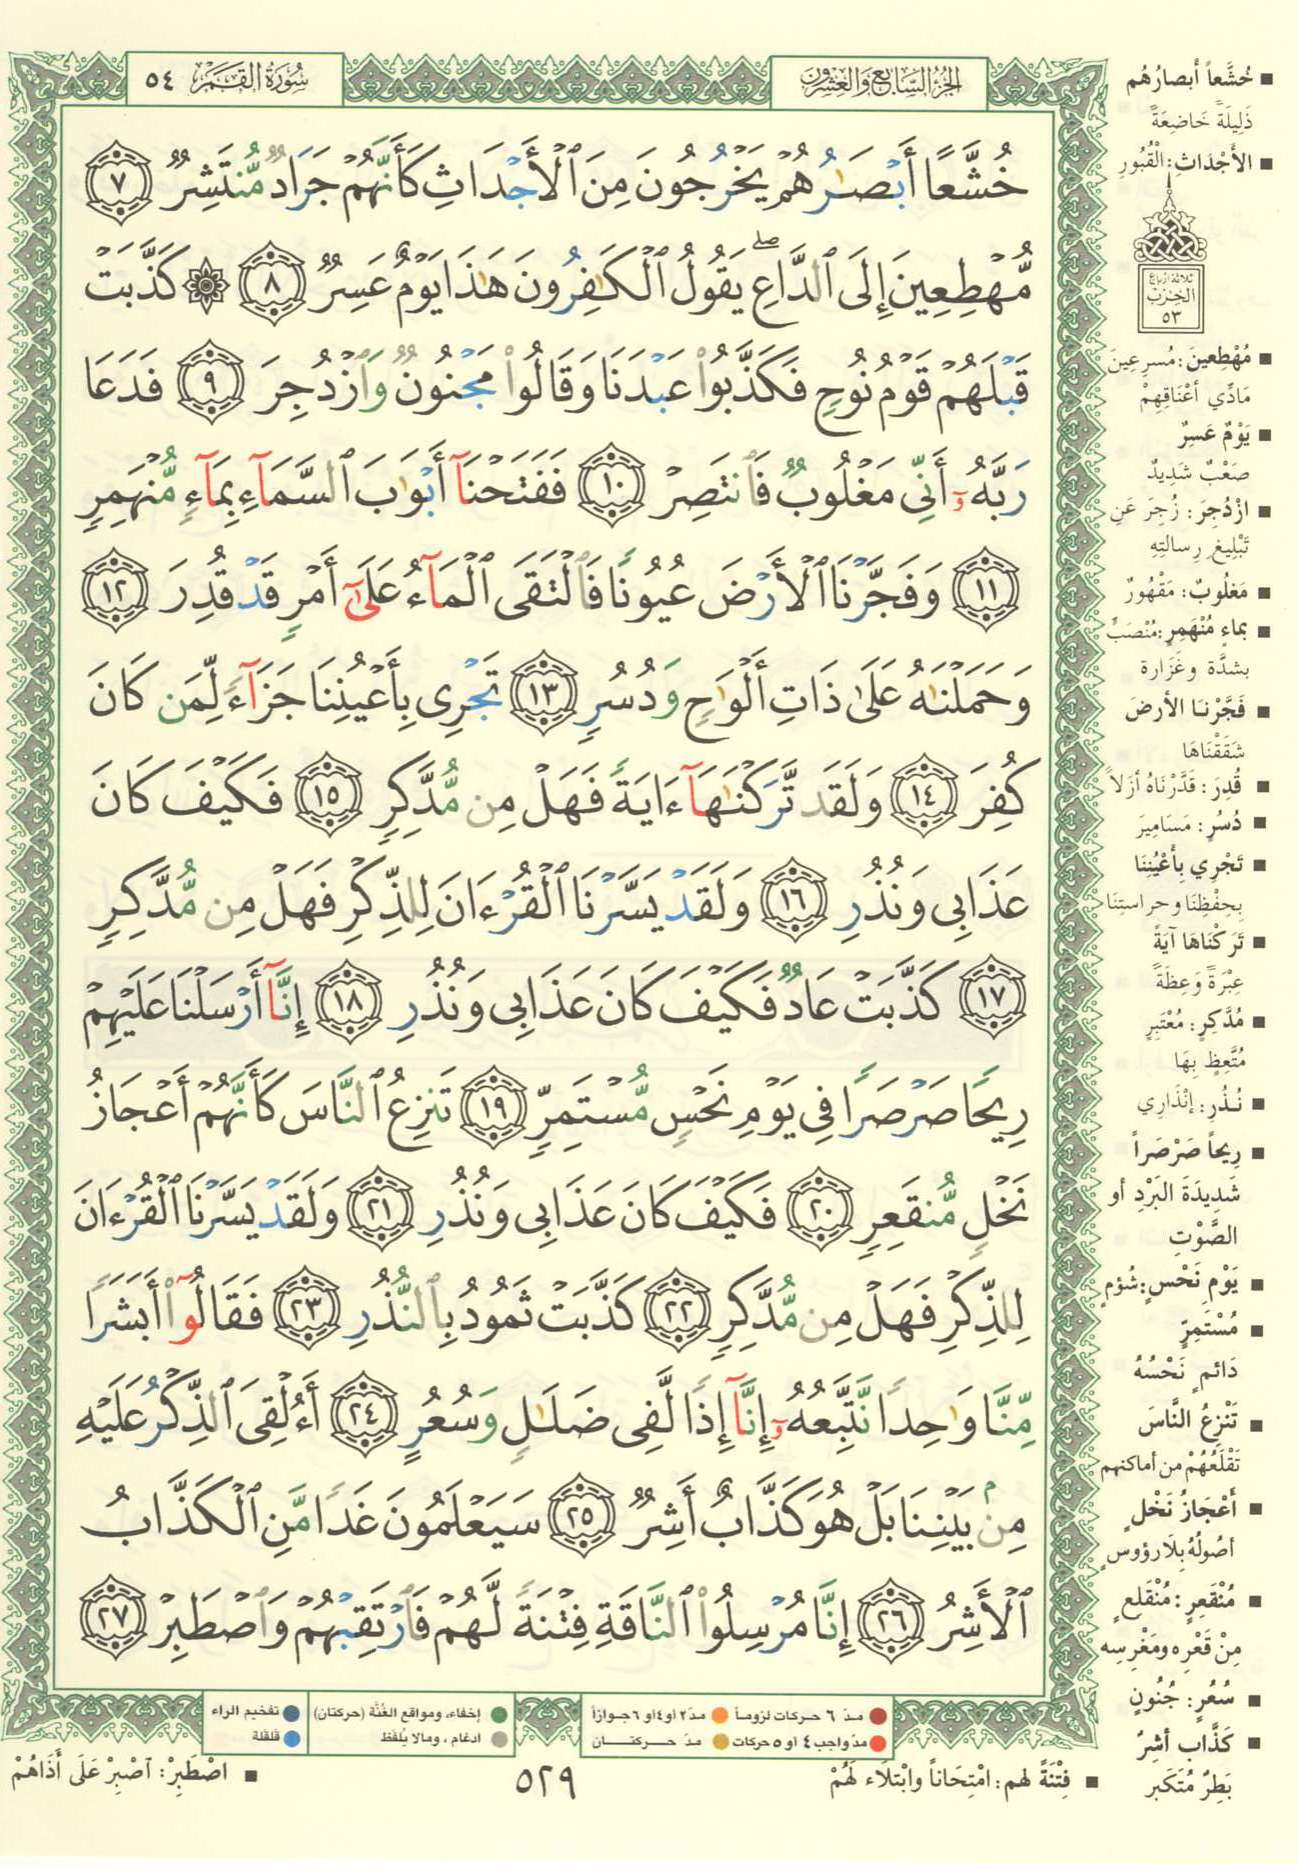 سُورَةُ القَمَر ٥٤
الجُزءُ السَّابِعُ وَالعِشرُون
خُشَّعًا أَبْصَٰرُهُمْ يَخْرُجُونَ مِنَ ٱلْأَجْدَاثِ كَأَنَّهُمْ جَرَادٌ مُّنتَشِرٌ ٧
مُّهْطِعِينَ إِلَى ٱلدَّاعِ ۖ يَقُولُ ٱلْكَٰفِرُونَ هَٰذَا يَوْمٌ عَسِرٌ ٨ ۞ كَذَّبَتْ
قَبْلَهُمْ قَوْمُ نُوحٍ فَكَذَّبُوا۟ عَبْدَنَا وَقَالُوا۟ مَجْنُونٌ وَٱزْدُجِرَ ٩ فَدَعَا
رَبَّهُۥٓ أَنِّى مَغْلُوبٌ فَٱنتَصِرْ ١٠ فَفَتَحْنَآ أَبْوَٰبَ ٱلسَّمَآءِ بِمَآءٍ مُّنْهَمِرٍ
١١ وَفَجَّرْنَا ٱلْأَرْضَ عُيُونًا فَٱلْتَقَى ٱلْمَآءُ عَلَىٰٓ أَمْرٍ قَدْ قُدِرَ ١٢
وَحَمَلْنَٰهُ عَلَىٰ ذَاتِ أَلْوَٰحٍ وَدُسُرٍ ١٣ تَجْرِى بِأَعْيُنِنَا جَزَآءً لِّمَن كَانَ
كُفِرَ ١٤ وَلَقَد تَّرَكْنَٰهَآ ءَايَةً فَهَلْ مِن مُّدَّكِرٍ ١٥ فَكَيْفَ كَانَ
عَذَابِى وَنُذُرِ ١٦ وَلَقَدْ يَسَّرْنَا ٱلْقُرْءَانَ لِلذِّكْرِ فَهَلْ مِن مُّدَّكِرٍ
١٧ كَذَّبَتْ عَادٌ فَكَيْفَ كَانَ عَذَابِى وَنُذُرِ ١٨ إِنَّآ أَرْسَلْنَا عَلَيْهِمْ
رِيحًا صَرْصَرًا فِى يَوْمِ نَحْسٍ مُّسْتَمِرٍّ ١٩ تَنزِعُ ٱلنَّاسَ كَأَنَّهُمْ أَعْجَازُ
نَخْلٍ مُّنقَعِرٍ ٢٠ فَكَيْفَ كَانَ عَذَابِى وَنُذُرِ ٢١ وَلَقَدْ يَسَّرْنَا ٱلْقُرْءَانَ
لِلذِّكْرِ فَهَلْ مِن مُّدَّكِرٍ ٢٢ كَذَّبَتْ ثَمُودُ بِٱلنُّذُرِ ٢٣ فَقَالُوٓا۟ أَبَشَرًا
مِّنَّا وَٰحِدًا نَّتَّبِعُهُۥٓ إِنَّآ إِذًا لَّفِى ضَلَٰلٍ وَسُعُرٍ ٢٤ أَءُلْقِىَ ٱلذِّكْرُ عَلَيْهِ
مِنۢ بَيْنِنَا بَلْ هُوَ كَذَّابٌ أَشِرٌ ٢٥ سَيَعْلَمُونَ غَدًا مَّنِ ٱلْكَذَّابُ
ٱلْأَشِرُ ٢٦ إِنَّا مُرْسِلُوا۟ ٱلنَّاقَةِ فِتْنَةً لَّهُمْ فَٱرْتَقِبْهُمْ وَٱصْطَبِرْ ٢٧
■ خُشَّعاً أبصارُهُم
ذَلِيلَةً خَاضِعَةً
■ الأَجْدَاثِ: الْقُبُورِ
ثلاثة أرباع
الحزب
٥٣
■ مُهْطِعينَ: مُسرِعِينَ
مَادِّي أعْنَاقِهِمْ
■ يَوْمٌ عَسِرٌ
صَعْبٌ شَدِيدٌ
■ ازْدُجِرَ: زُجِرَ عَنِ
تَبْلِيغِ رِسالتِهِ
■ مَغلُوبٌ: مَقْهُورٌ
■ بماءٍ مُنْهَمِرٍ: مُنْصَبٍّ
بشدَّة وغَزَارة
■ فَجَّرْنا الأرضَ
شَقَقْنَاهَا
■ قُدِرَ: قَدَّرْنَاهُ أزَلاً
■ دُسُرٍ: مَسَامِيرَ
■ تَجْرِي بِأَعْيُنِنَا
بِحِفْظِنَا وحراستِنَا
■ تَرَكْنَاهَا آيَةً
عِبْرَةً وَعِظَةً
■ مُدَّكِرٍ: مُعْتَبِرٍ
مُتَّعِظٍ بِهَا
■ نُذُرِ: إنْذَارِي
■ رِيحاً صَرْصَراً
شَدِيدَةَ البَرْدِ أو
الصَّوْتِ
■ يَوْمِ نَحْسٍ: شُؤمٍ
■ مُسْتَمِرٍّ
دَائمٍ نَحْسُهُ
■ تَنْزِعُ النَّاسَ
تَقْلَعُهُمْ من أماكنهم
■ أَعْجَازُ نَخْلٍ
أصُولُهُ بِلَا رؤوسٍ
■ مُنْقَعِرٍ: مُنْقَلِعٍ
مِنْ قَعْرِه ومَغْرِسِه
■ سُعُرٍ: جُنُونٍ
■ كَذَّاب أشِرٌ
بَطِرٌ مُتَكَبر
مدّ ٦ حركات لزوماً مدّ٢ أو٤أو ٦جوازاً
مدّ واجب٤ أو ٥ حركات مدّ حركتان
إخفاء، ومواقع الغُنَّة (حركتان) تفخيم الراء
ادغام، ومالا يُلفَظ قلقلة
■ فِتْنَةً لهم: امْتِحَاناً وابْتلَاء لَهُمْ
٥٢٩
■ اصْطَبِرْ: اصْبِرْ عَلَى أَذَاهُمْ